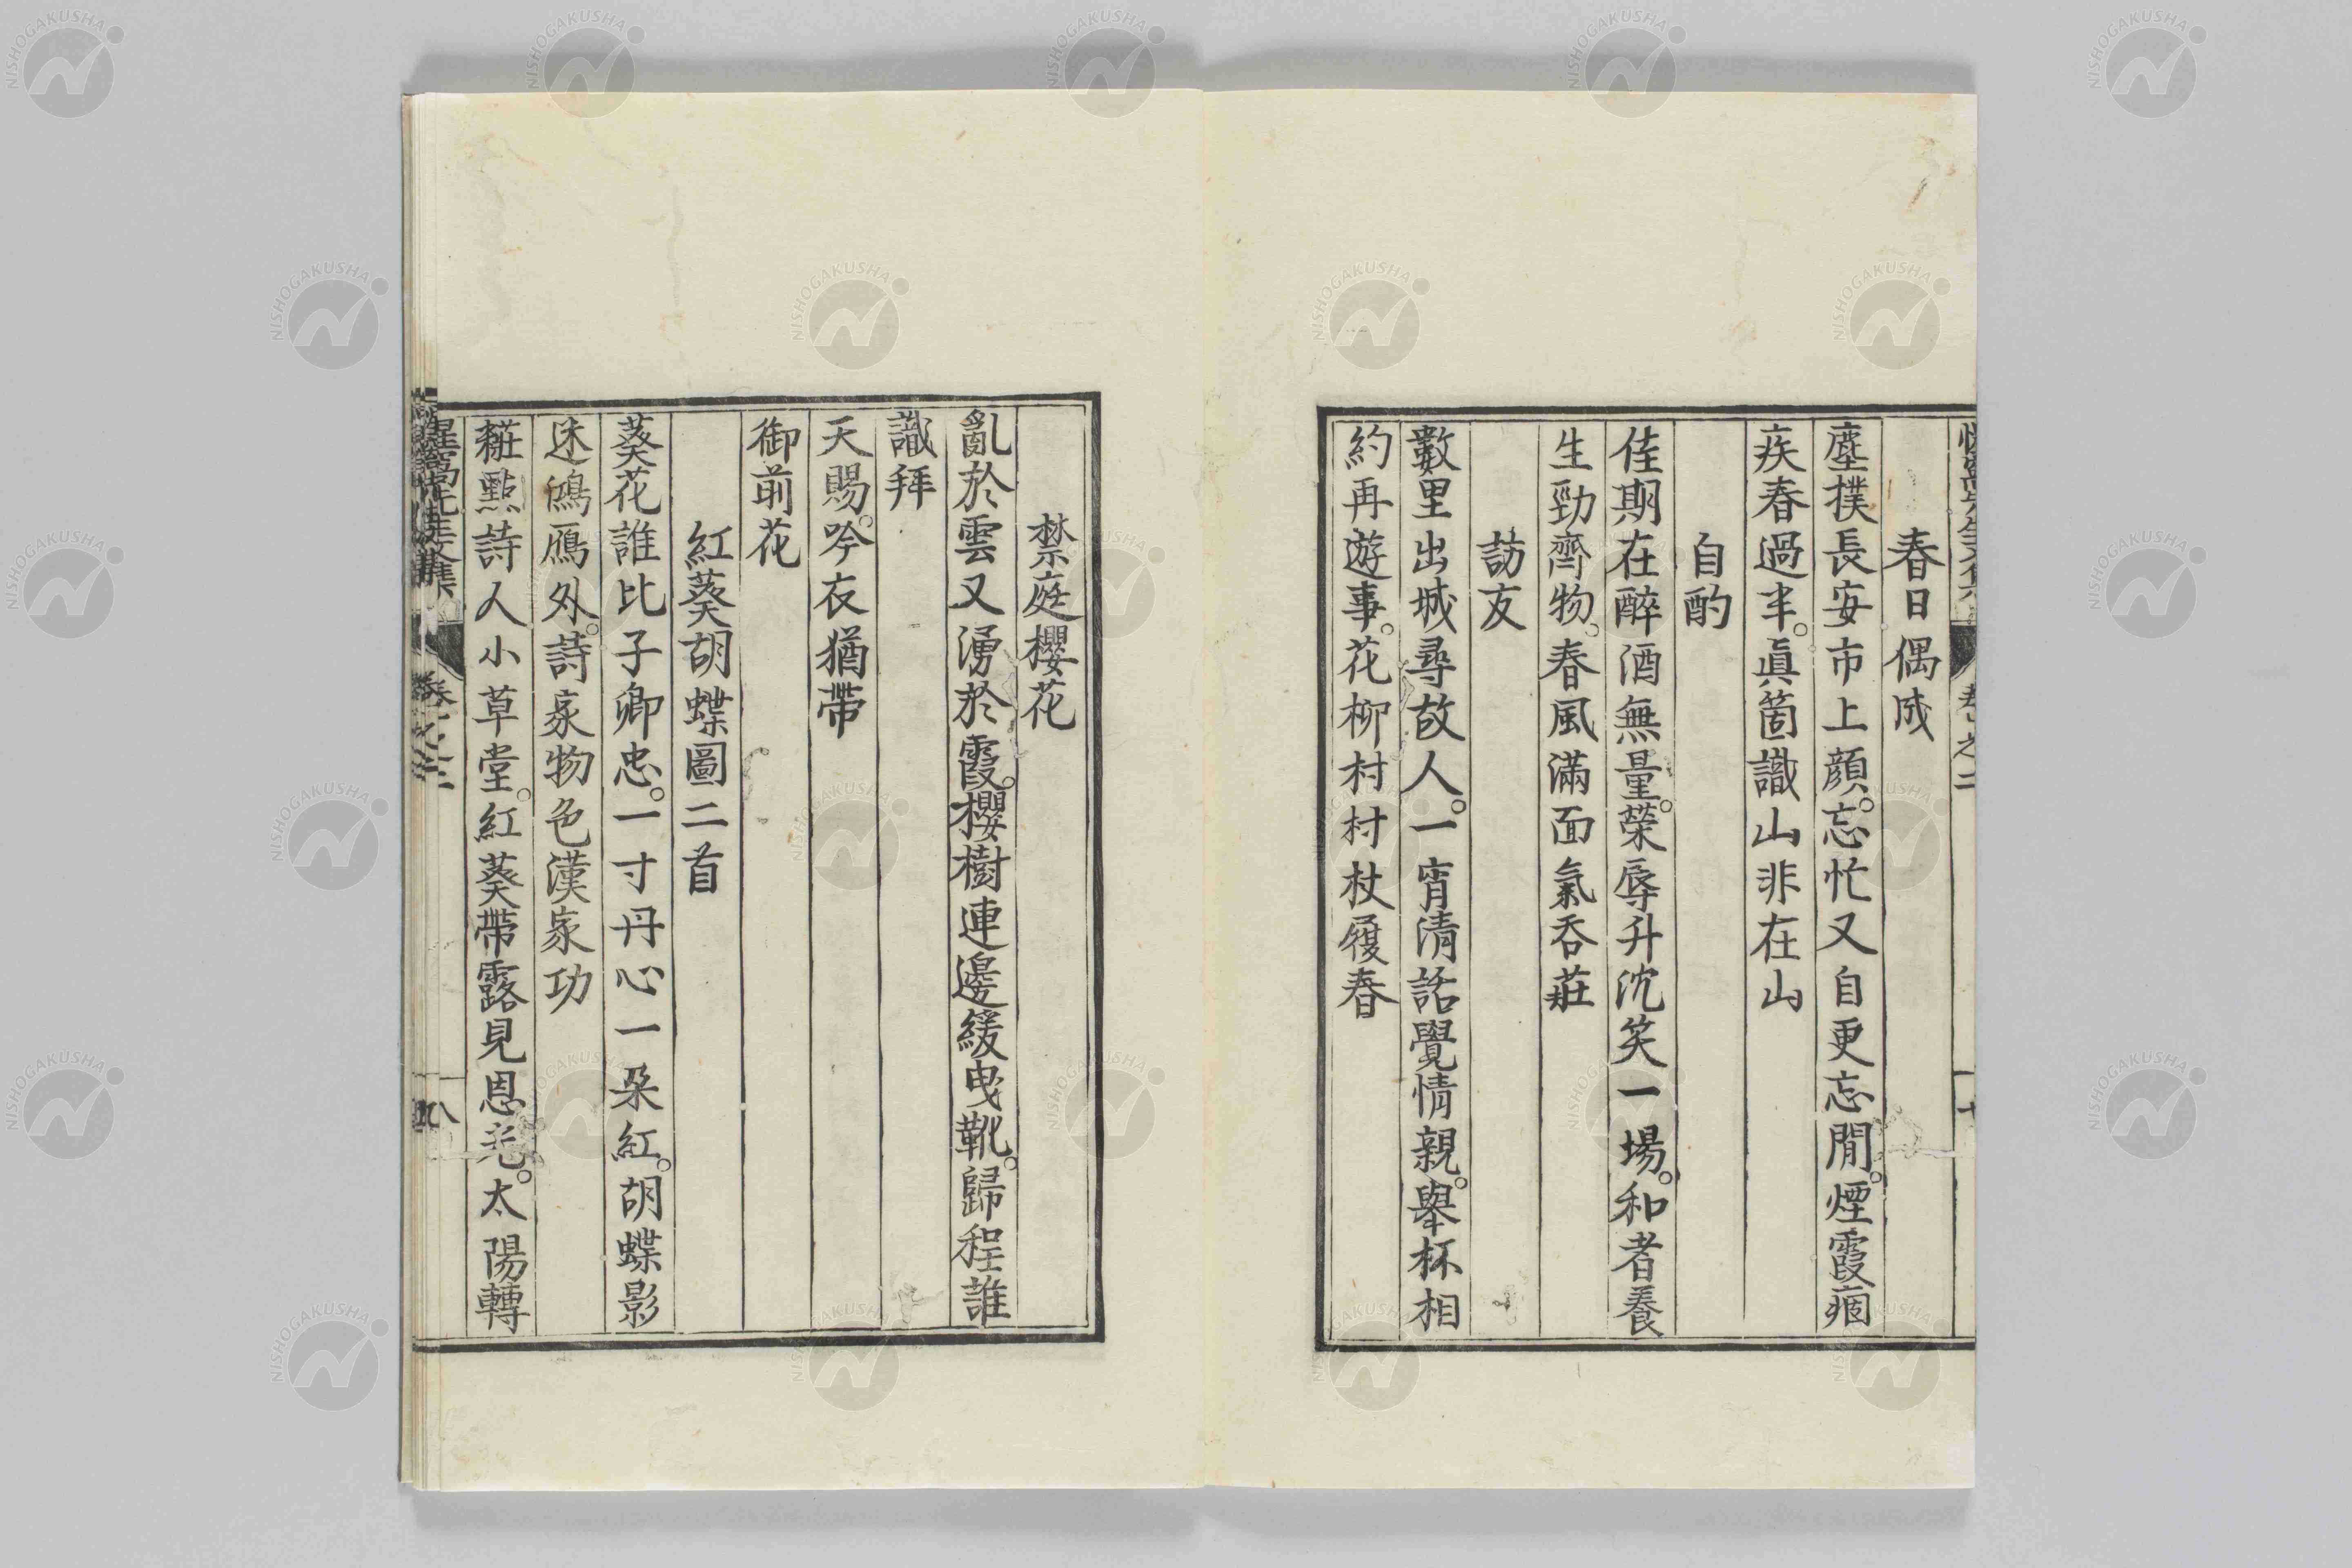 春日偶成
塵撲長安市上顔。忘忙又自更忘閒。煙霞痼
疾春過半。眞箇識山非在山
自酌
佳期在醉酒無量。榮辱升沈笑一場。和者養
生勁齊物。春風滿面氣吞莊
訪友
數里出城尋故人。一宵清話覺情親。舉杯相
約再遊事。花柳村村杖履春
禁庭櫻花
亂於雲又湧於霞。櫻樹連邊緩曳靴。歸程誰
識拜
天賜。吟衣猶帶
御前花
紅葵胡蝶圖二首
葵花誰比子卿忠。一寸丹心一朶紅。胡蝶影
迷鴻鴈外。詩家物色漢家功
粧點詩人小草堂。紅葵帶露見恩光。太陽轉
卷之二
八
NISHOGAKUSHA